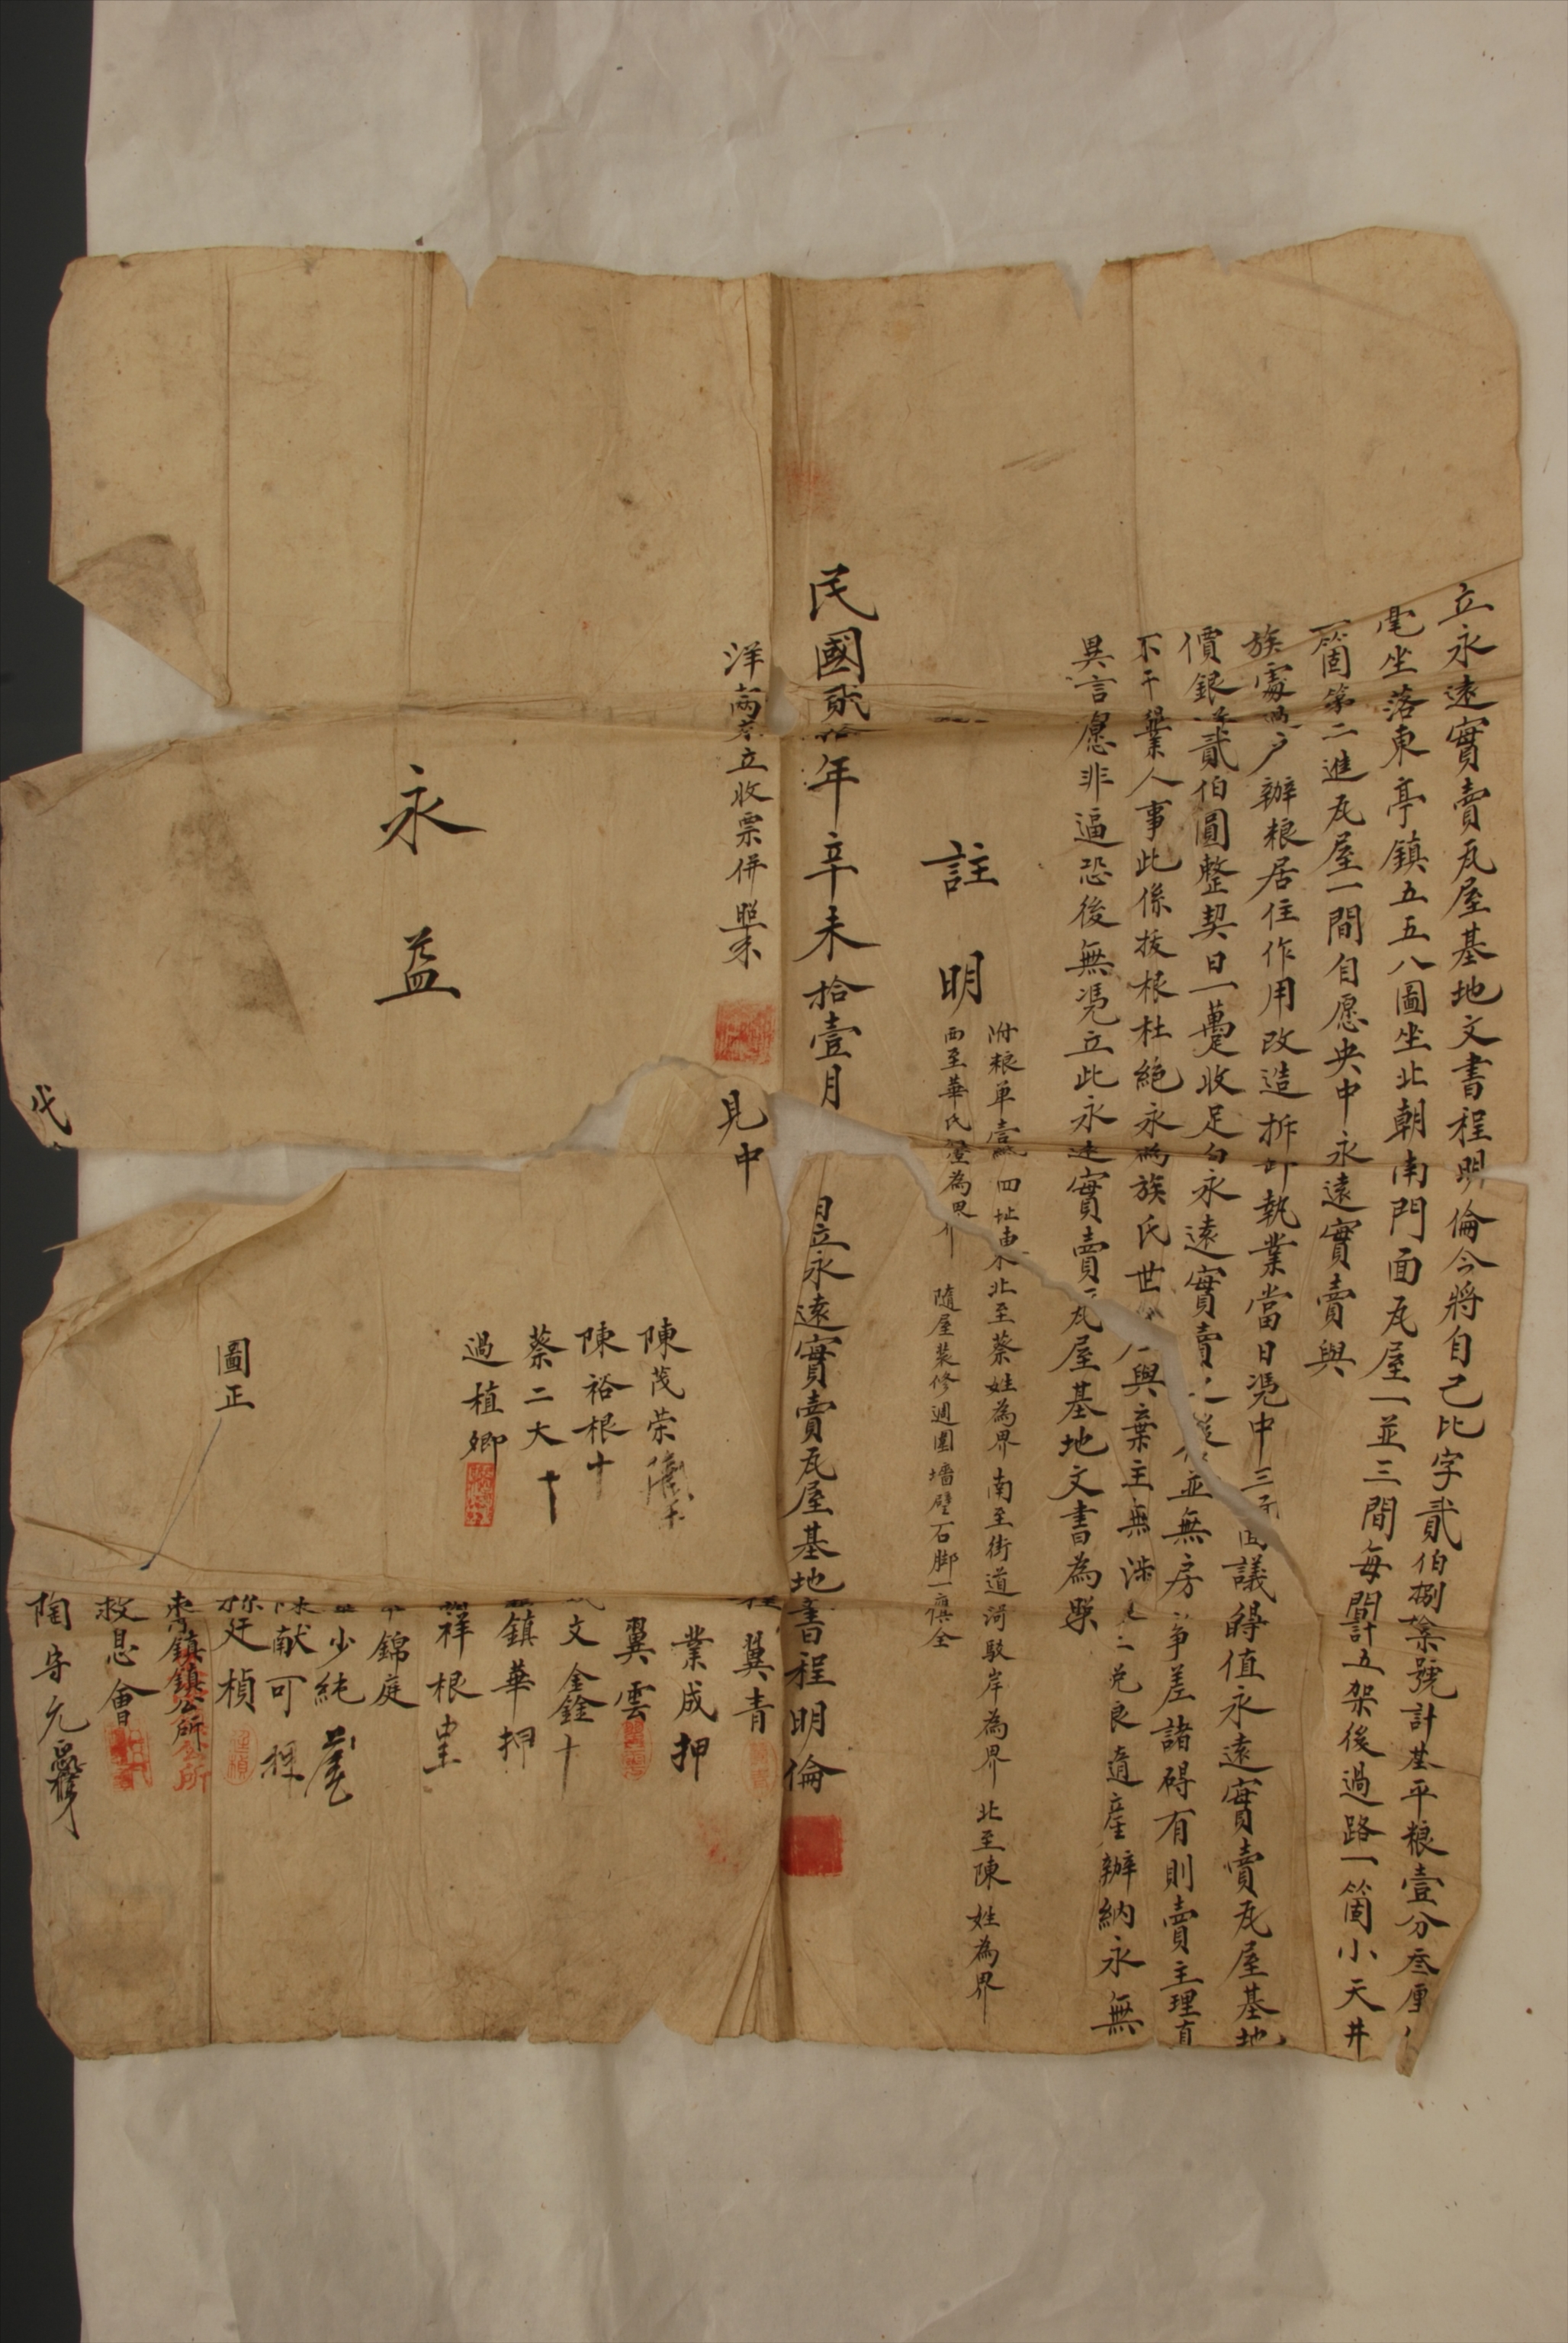 立永遠實賣瓦屋基地文書程明倫今將自己比字貳伯捌拾號計基平粮壹分叁厘
毫坐落東亭鎮五五八圖坐北朝南門面瓦屋一並三間每間計五架後過路一箇小天井
一箇第二進瓦屋一間自愿央中永遠實賣與
族處過戶辦粮居住作用改造拆卸執業當日凭中三面議得值永遠實賣瓦屋基地
價銀洋貳伯圓整契日一躉收足自永遠實賣之後並無房爭差諸碍有則賣主理直
不干業人事此係拔根杜絕永為族氏世與棄主無涉二兌良遺產辦納永無
異言愿非逼恐後無凭立此永遠實賣瓦屋基地文書為照
註明
附粮单壹紙四址東北至蔡姓為界南至街道河駁岸為界北至陳姓為界
西至華氏為界隨屋装修週圍墻壁石脚一應全
民國貳拾年辛未拾壹月日立永遠實賣瓦屋基地書程明倫
洋両不立收票併照
見中
翼青
業成押
陳茂荣
翼雲
陳裕根十
文金銓十
蔡二大十
鎮華押
過植卿
祥根
錦庭
永益
少純
献可
廷楨
圖正
東鎮鎮公所
救息會
代
陶守允